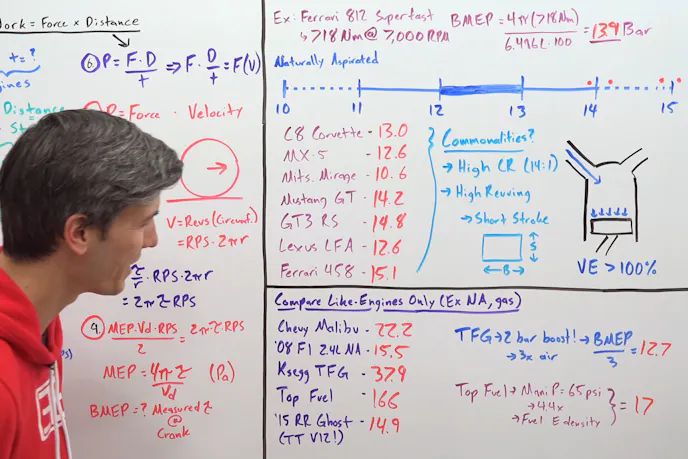 Work = Force x Distance
t = ?
gines
Distance
6. P = F·D/t ⇒ F·D/t = F(V)
P = Force · Velocity
V = Revs (Circumf.)
= RPS·2πr
τ/r·RPS·2πr
= 2πτRPS
9. MEP·Vd·RPS/2 = 2πτ·RPS
MEP = 4πτ/Vd (Pa)
BMEP = ? Measured τ
@
Crank
Ex: Ferrari 812 Superfast
↳ 718 Nm @ 7,000 RPM
BMEP = 4π(718Nm)/6.496L·100 = 13.9 Bar
Naturally Aspirated
10 11 12 13 14 15
C8 Corvette - 13.0
MX-5 - 12.6
Mits. Mirage - 10.6
Mustang GT - 14.2
GT3 RS - 14.8
Lexus LFA - 12.6
Ferrari 458 - 15.1
Commonalities?
→ High CR (14:1)
→ High Revving
→ Short Stroke
S
B
VE > 100%
Compare Like-Engines Only (Ex NA, gas)
Chevy Malibu - 22.2
'08 F1 2.4L NA - 15.5
Ksegg TFG - 37.9
Top Fuel - 166
'15 RR Ghost - 14.9
(TT V12!)
TFG → 2 bar boost! → BMEP/3 = 12.7
→ 3x air
Top Fuel → Mani P = 65psi
→ 4.4x
→ Fuel E density
= 17